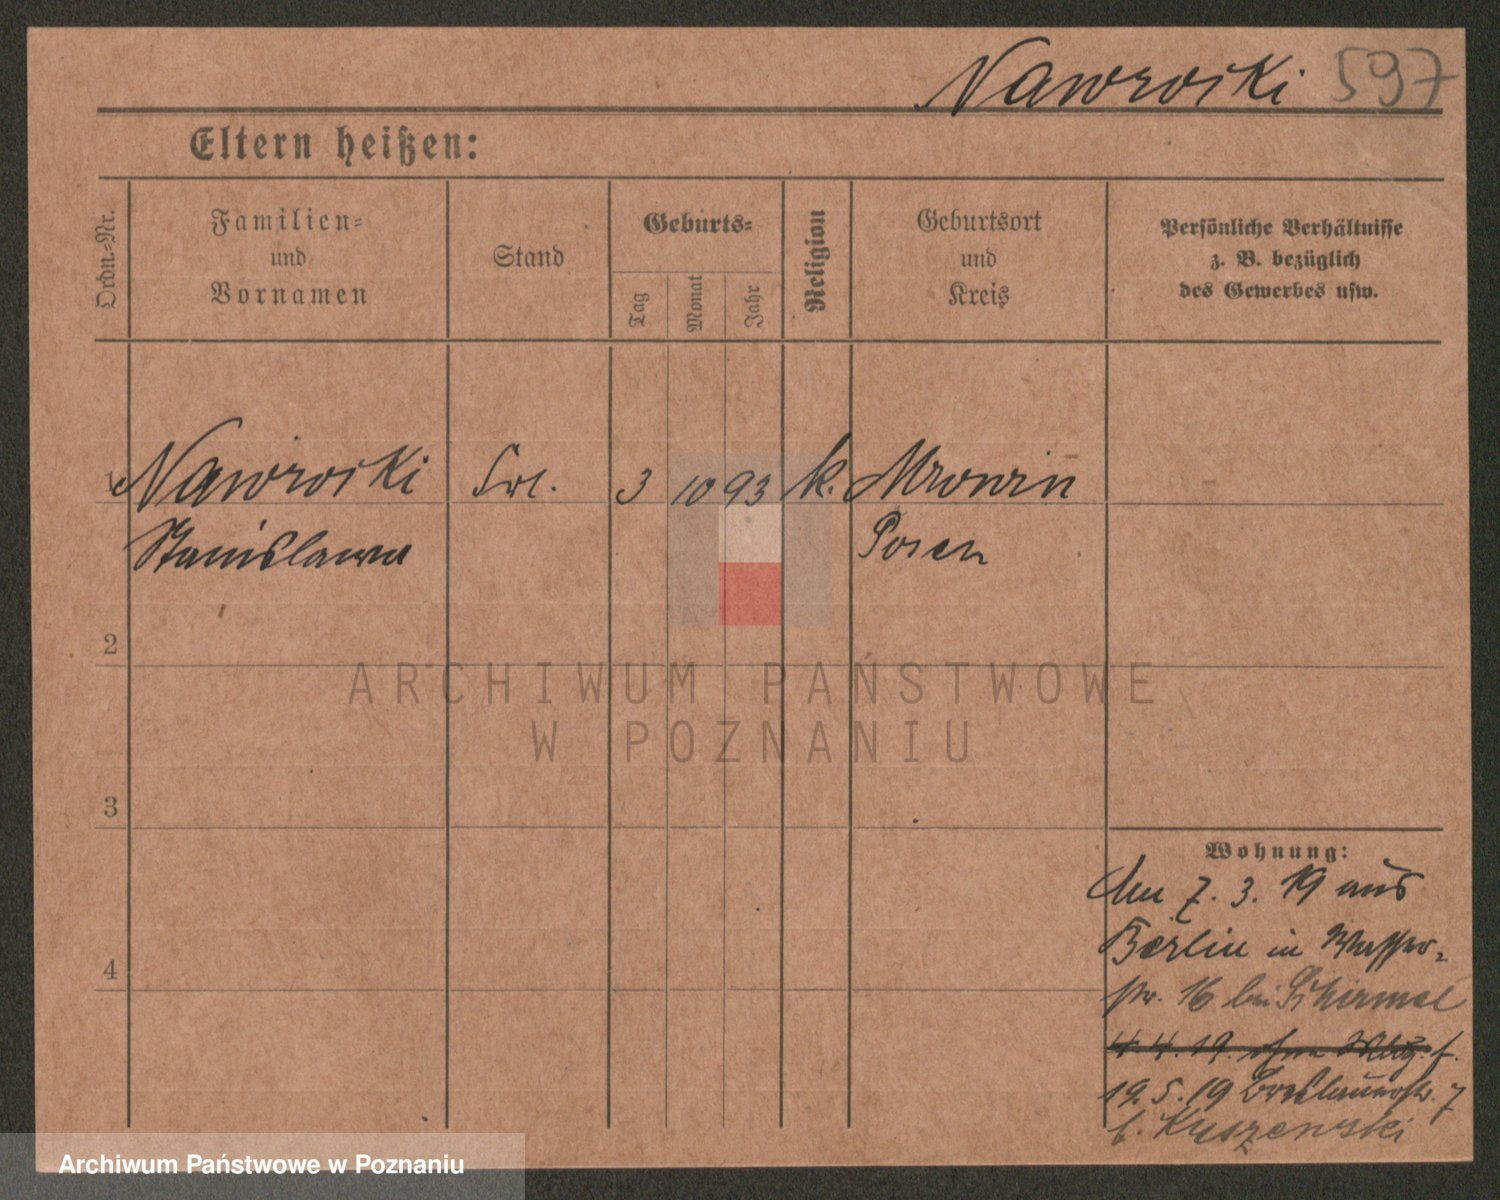 Nawrocki 597
Eltern heißen:
Ordn.-Nr.
Familien-
und
Vornamen
Stand
Geburts-
Tag
Monat
Jahr
Religion
Geburtsort
und
Kreis
Persönliche Verhältnisse
z. B. bezüglich
des Gewerbes usw.
1 Nawrocki Frl. 3 10 93 k.
Stanislawa Posen
2
ARCHIWUM PAŃSTWOWE
W POZNANIU
3
Wohnung:
Am 7. 3. 19 aus
Berlin in Wasser-
str. 16 bei
4
4. 4. 19. ohne
19. 5. 19 Breslauerstr. 7
b.
Archiwum Państwowe w Poznaniu